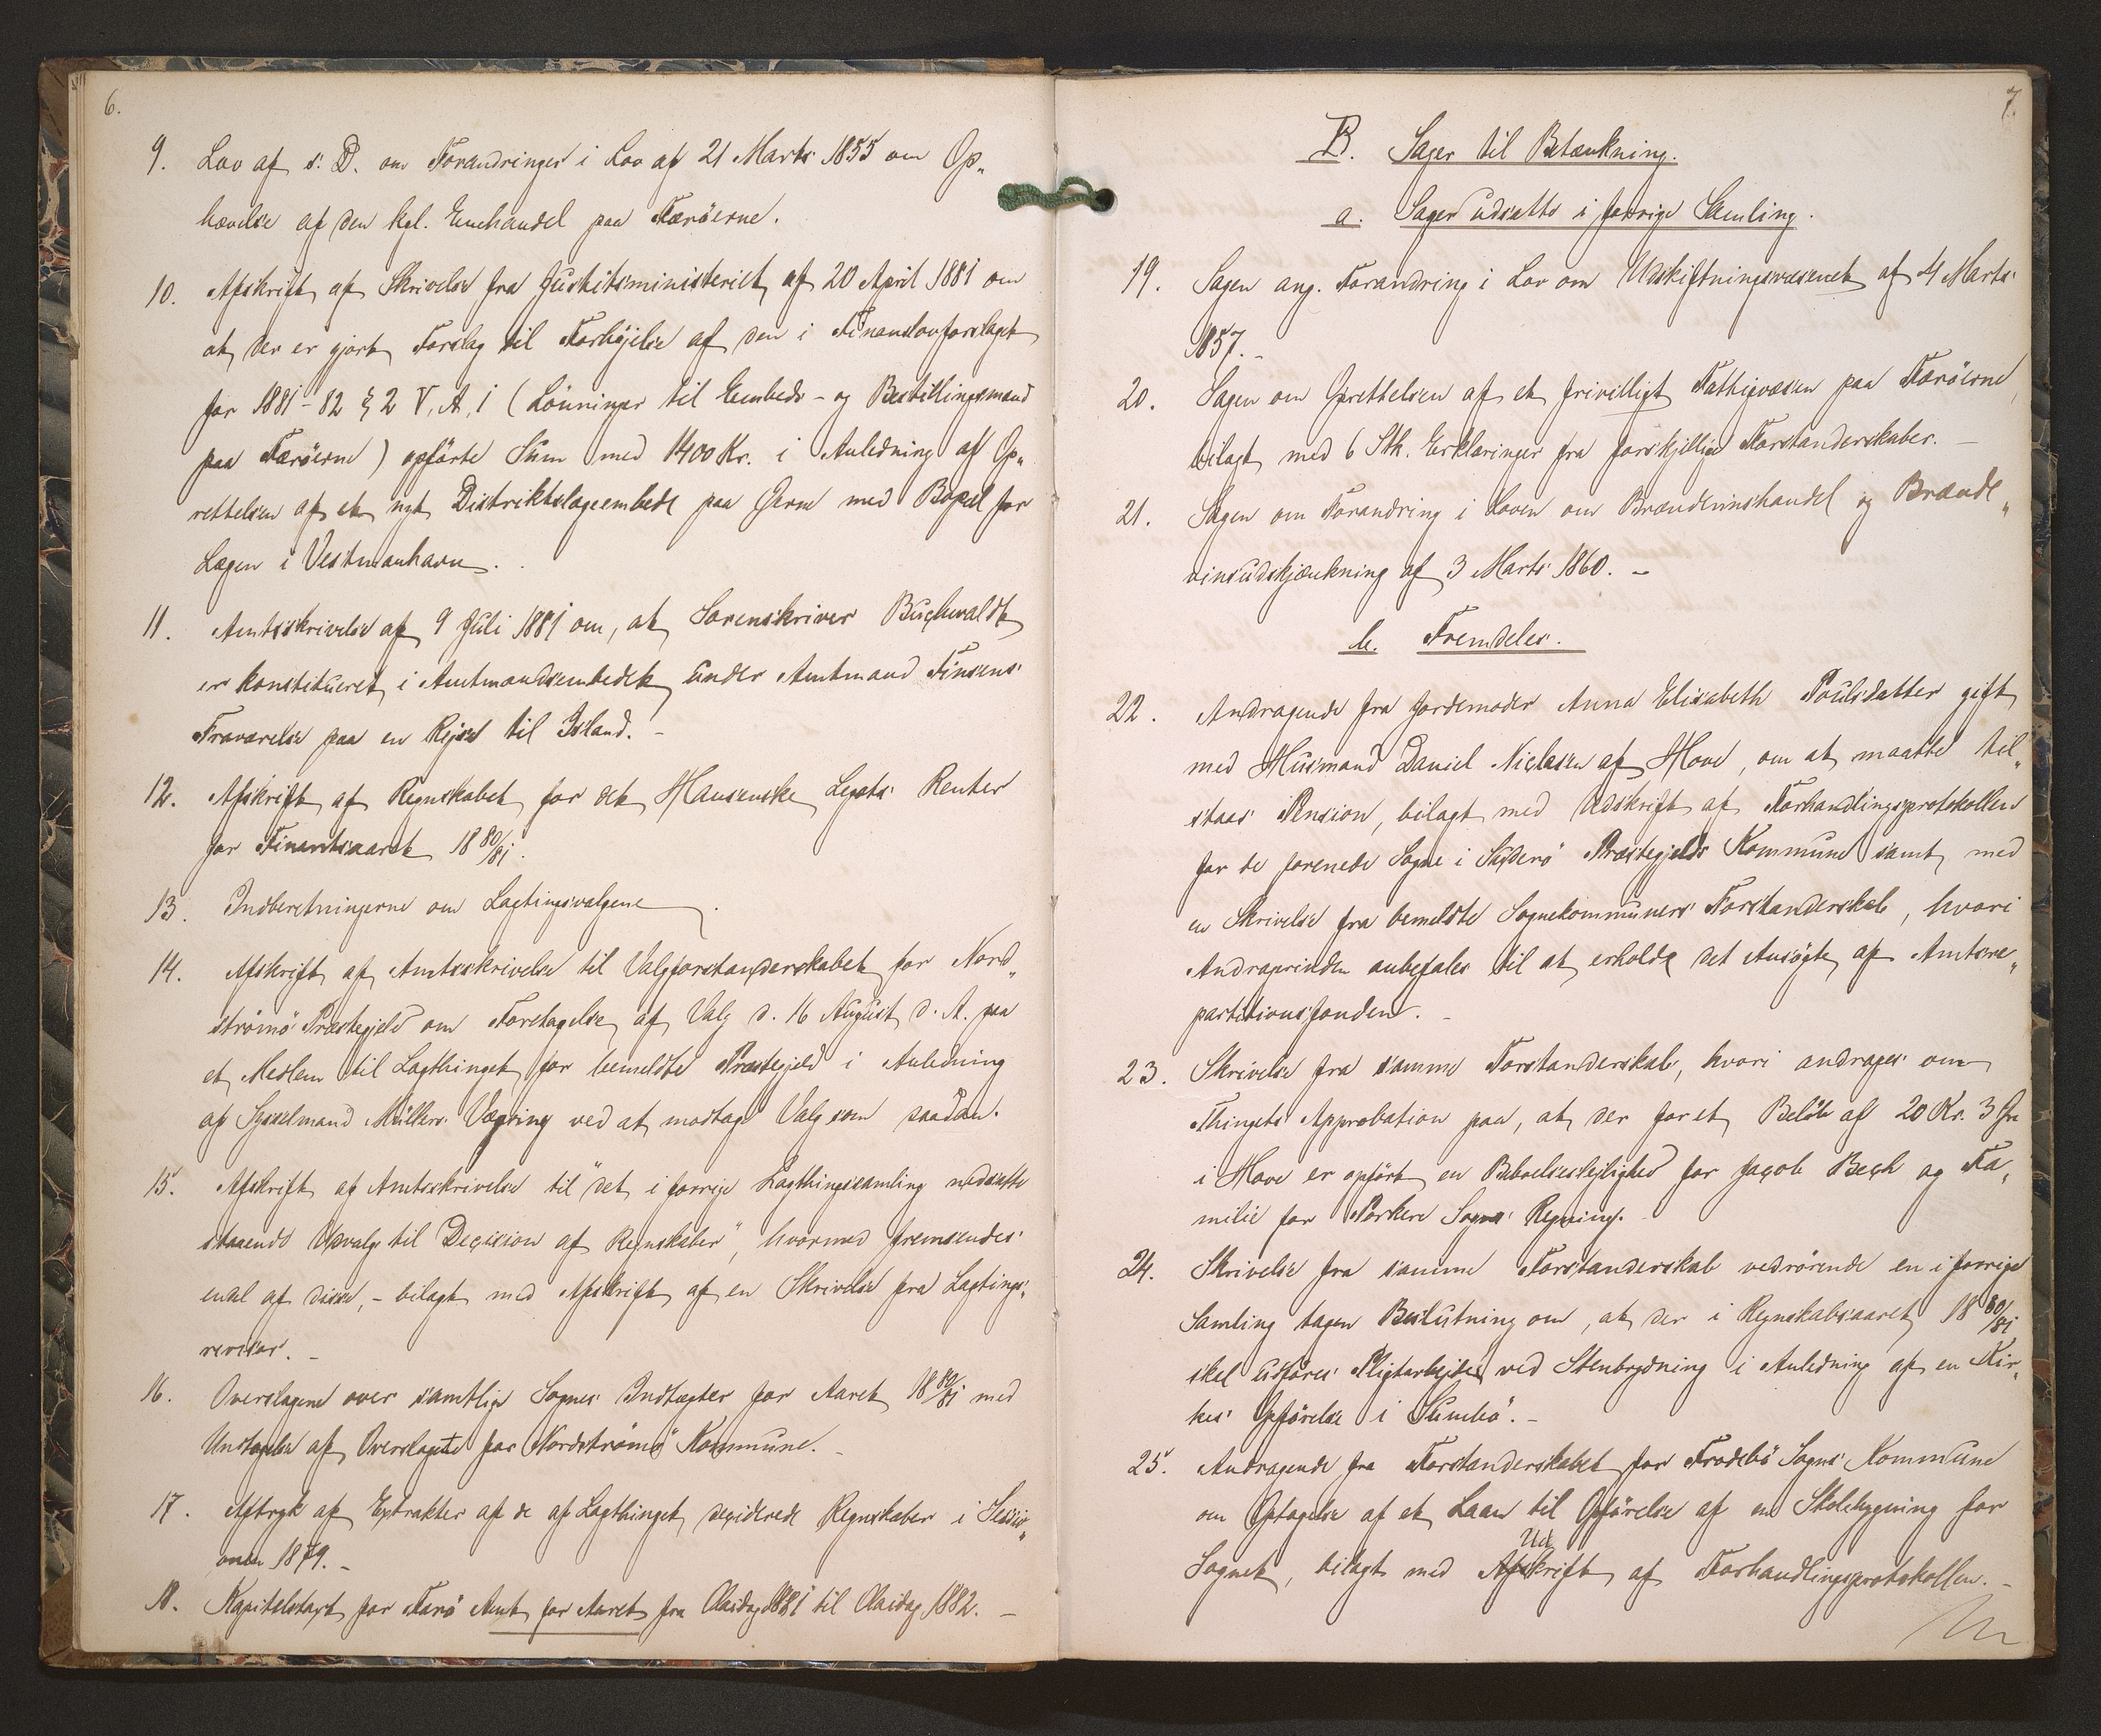 6.
9. Lov af s: D. om Forandringer i Lov af 21 Marts 1855 om Op„
hævelse af den kgl. Enehandel paa Færöerne.
10. Afskrift af Skrivelse fra Justitsministeriet af 20 April 1881 om
at der er gjort Forslag til Forhöjelse af den i Finanslovforslaget
for 1881-82 § 2 V, A, 1 (Lönninger til Embeds- og Bestillingsmænd
paa Færöerne) opförte Sum med 1400 Kr. i Anledning af Op„
rettelsen af et nyt Distriktslægeembede paa Öerne med Bopæl for
Lægen i Vestmanhavn.
11. Amtsskrivelse af 9 Juli 1881 om, at Sorenskriver Buchwaldt
er konstitueret i Amtmandsembedet under Amtmand Finsens
Fraværelse paa en Rejse til Island. -
12. Afskrift af Regnskabet for det Hansenske Legats Renter
for Finantsaaret 1880/81.
13. Indberetningerne om Lagtingsvalgene.
14. Afskrift af Amtsskrivelse til Valgforstanderskabet for Nord„
strömö Præstegjeld om Foretagelse af Valg d. 16 August d. A. paa
et Medlem til Lagthinget for bemeldte Præstegjeld i Anledning
af Sysselmand Müllers Vægring ved at modtage Valg som saadan.
15. Afskrift af Amtsskrivelse til "det i forrige Lagthingssamling nedsatte
staaende Udvalg til Decision af Regnskaber", hvormed fremsendes
endel af disse, - bilagt med Afskrift af en Skrivelse fra Lagtings„
revisor. -
16. Overslagene over samtlige Sognes Indtægter for Aaret 1880/81 med
Undtagelse af Overslagete for Nordströmö Kommune. -
17. Aftryk af Extrakter af de af Lagthinget deciderede Regnskaber i Sessi„
onen 1879. -
18. Kapitelstaxt for Færö Amt for Aaret fra Olaidag 1881 til Olaidag 1882. -
7.
B. Sager til Betænkning.
a. Sager udsatte i forrige Samling.
19. Sagen ang. Forandring i Lov om Udskiftningsvæsenet af 4 Marts
1857. -
20. Sagen om Oprettelsen af et frivilligt Fattigvæsen paa Færöerne,
bilagt med 6 Stk. Erklæringer fra forskjellige Forstanderskaber. -
21. Sagen om Forandring i Loven om Brændevinshandel og Brænde„
vinsudskjænkning af 3 Marts 1860. -
b. Fremdeles.
22. Andragende fra Jordemoder Anna Elisabeth Poulsdatter gift
med Husmand Daniel Niclasen af Hove, om at maatte til„
staas Pension, bilagt med Udskrift af Forhandlingsprotokollen
for de forenede Sogne i Suderö Præstegjelds Kommune samt med
en Skrivelse fra bemeldte Sognekommuners Forstanderskab, hvori
Andragerinden anbefales til at erholde det Ansögte af Amtsre„
partitionsfonden. -
23. Skrivelse fra samme Forstanderskab, hvori andrages om
Thingets Approbation paa, at der for et Belöb af 20 Kr. 3 Öre
i Hove er opfört en Beboelseslejlighed for Jacob Bech og Fa„
milie for Porkere Sogns Regning. -
24. Skrivelse fra samme Forstanderskab vedrörende en i forrige
Samling tagen Beslutning om, at der i Regnskabsaaret 1880/81
skal udföres Pligtarbejde ved Stenbrydning i Anledning af en Kir„
kes Opförelse i Sumbö. -
25. Andragende fra Forstanderskabet for Frodebö Sogns Kommune
om Optagelse af et Laan til Opförelse af en Skolebygning for
Ud
Sognet, bilagt med Afskrift af Forhandlingsprotokollen. -